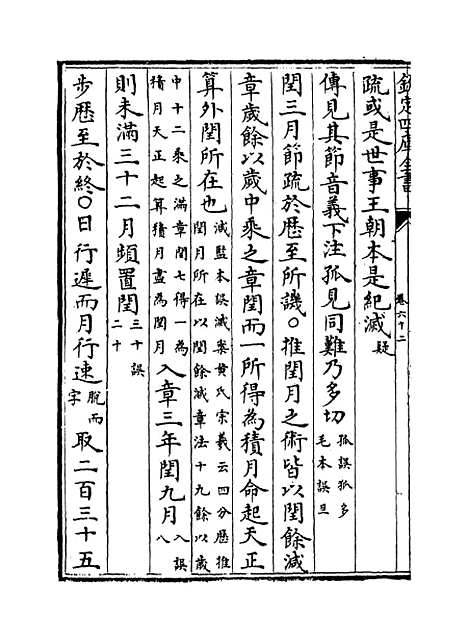 欽定四庫全書
卷六十二
疏或是世事王朝本是紀滅疑
傳見其節音義下注孤見同難乃多切孤誤狐多
毛本誤旦
閏三月節疏於歷至所譏○推閏月之術皆以閏餘減
章歲餘以歲中乘之章閏而一所得為積月命起天正
算外閏所在也減監本誤滅案黄氏宗羲云四分歷推
閏月所在以閏餘減章法十九餘以歲
中十二乘之滿章閏七得一為
積月天正起算積月盡為閏月入章三年閏九月入誤
八
則未滿三十二月頻置閏三十誤
二十
步歷至於終○日行遲而月行速脫而
字取二百三十五